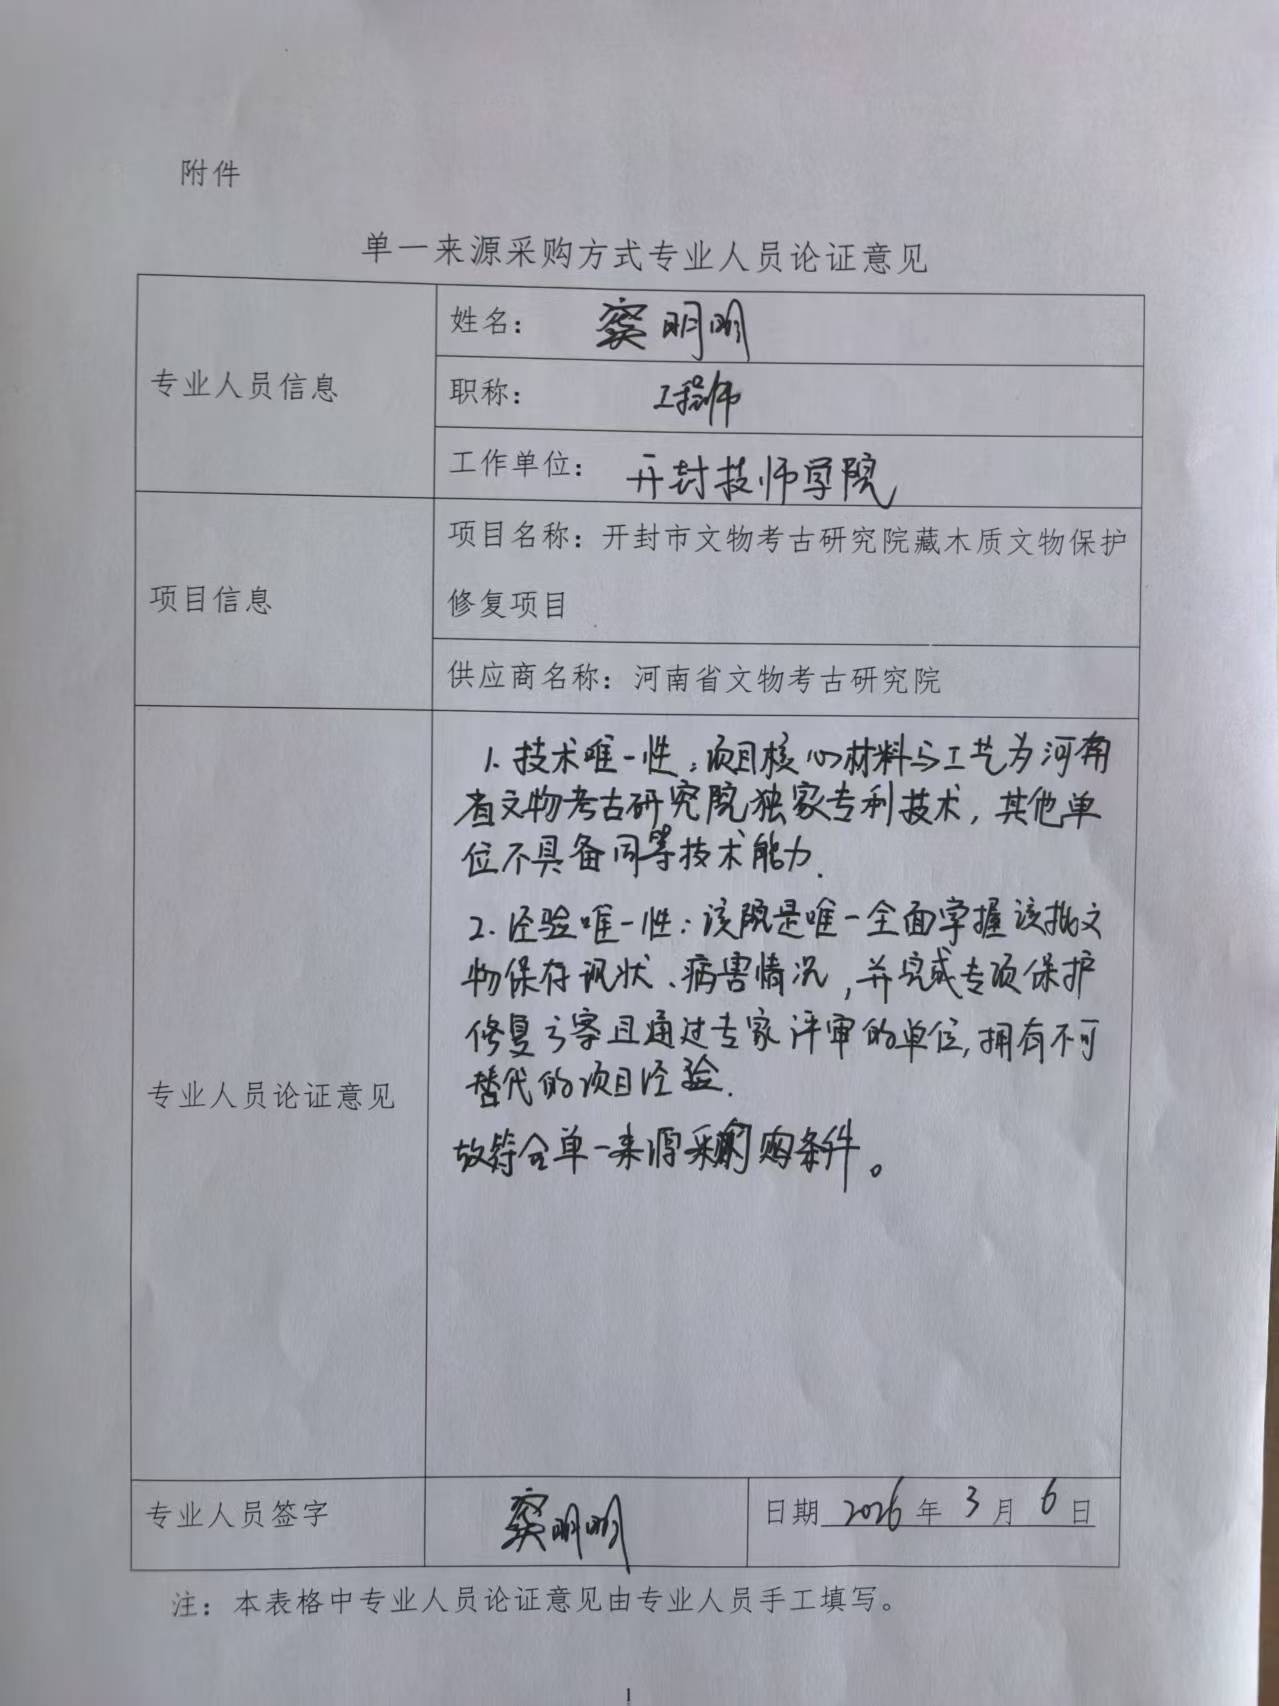 附件
单一来源采购方式专业人员论证意见
专业人员信息
姓名：窦明明
职称：工程师
工作单位：开封技师学院
项目信息
项目名称：开封市文物考古研究院藏木质文物保护
修复项目
供应商名称：河南省文物考古研究院
专业人员论证意见
1.技术唯一性：项目核心材料与工艺为河南
省文物考古研究院独家专利技术，其他单
位不具备同等技术能力.
2.经验唯一性：该院是唯一全面掌握该批文
物保存现状、病害情况，并完成专项保护
修复方案且通过专家评审的单位，拥有不可
替代的项目经验.
故符合单一来源采购条件。
专业人员签字
窦明明
日期2026年3月6日
注：本表格中专业人员论证意见由专业人员手工填写。
1